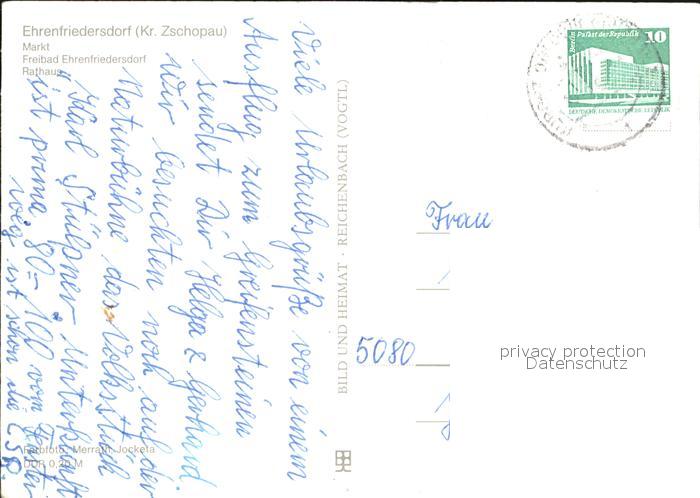 Ehrenfriedersdorf (Kr. Zschopau)
Markt
Freibad Ehrenfriedersdorf
Rathaus
Viele Urlaubsgrüße von einem
Ausflug zum Greifensteinen
sendet Dir Helga & Gerhard
Wir besuchten noch auf der
Naturbühne das Volksstück
"Karl Stülpner" Unterkunft
ist prima, 80 - 100 vom Fenster
weg ist schon die ČSR.
Farbfoto: Merrath, Jocketa
DDR 0,20 M
BILD UND HEIMAT · REICHENBACH (VOGTL)
Berlin Palast der Republik 10
DEUTSCHE DEMOKRATISCHE REPUBLIK
Frau
5080
privacy protection
Datenschutz